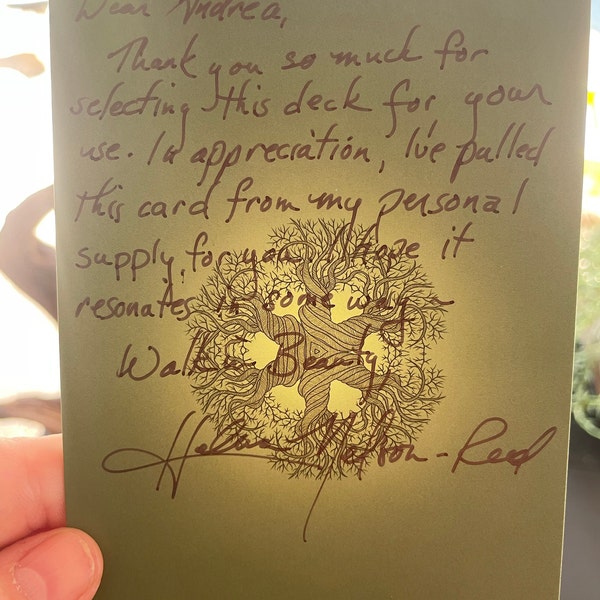 Dear Andrea,
Thank you so much for
selecting this deck for your
use. In appreciation, I've pulled
this card from my personal
supply for you. I hope it
resonates in some way~
Walk in Beauty,
Helena Nelson-Reed